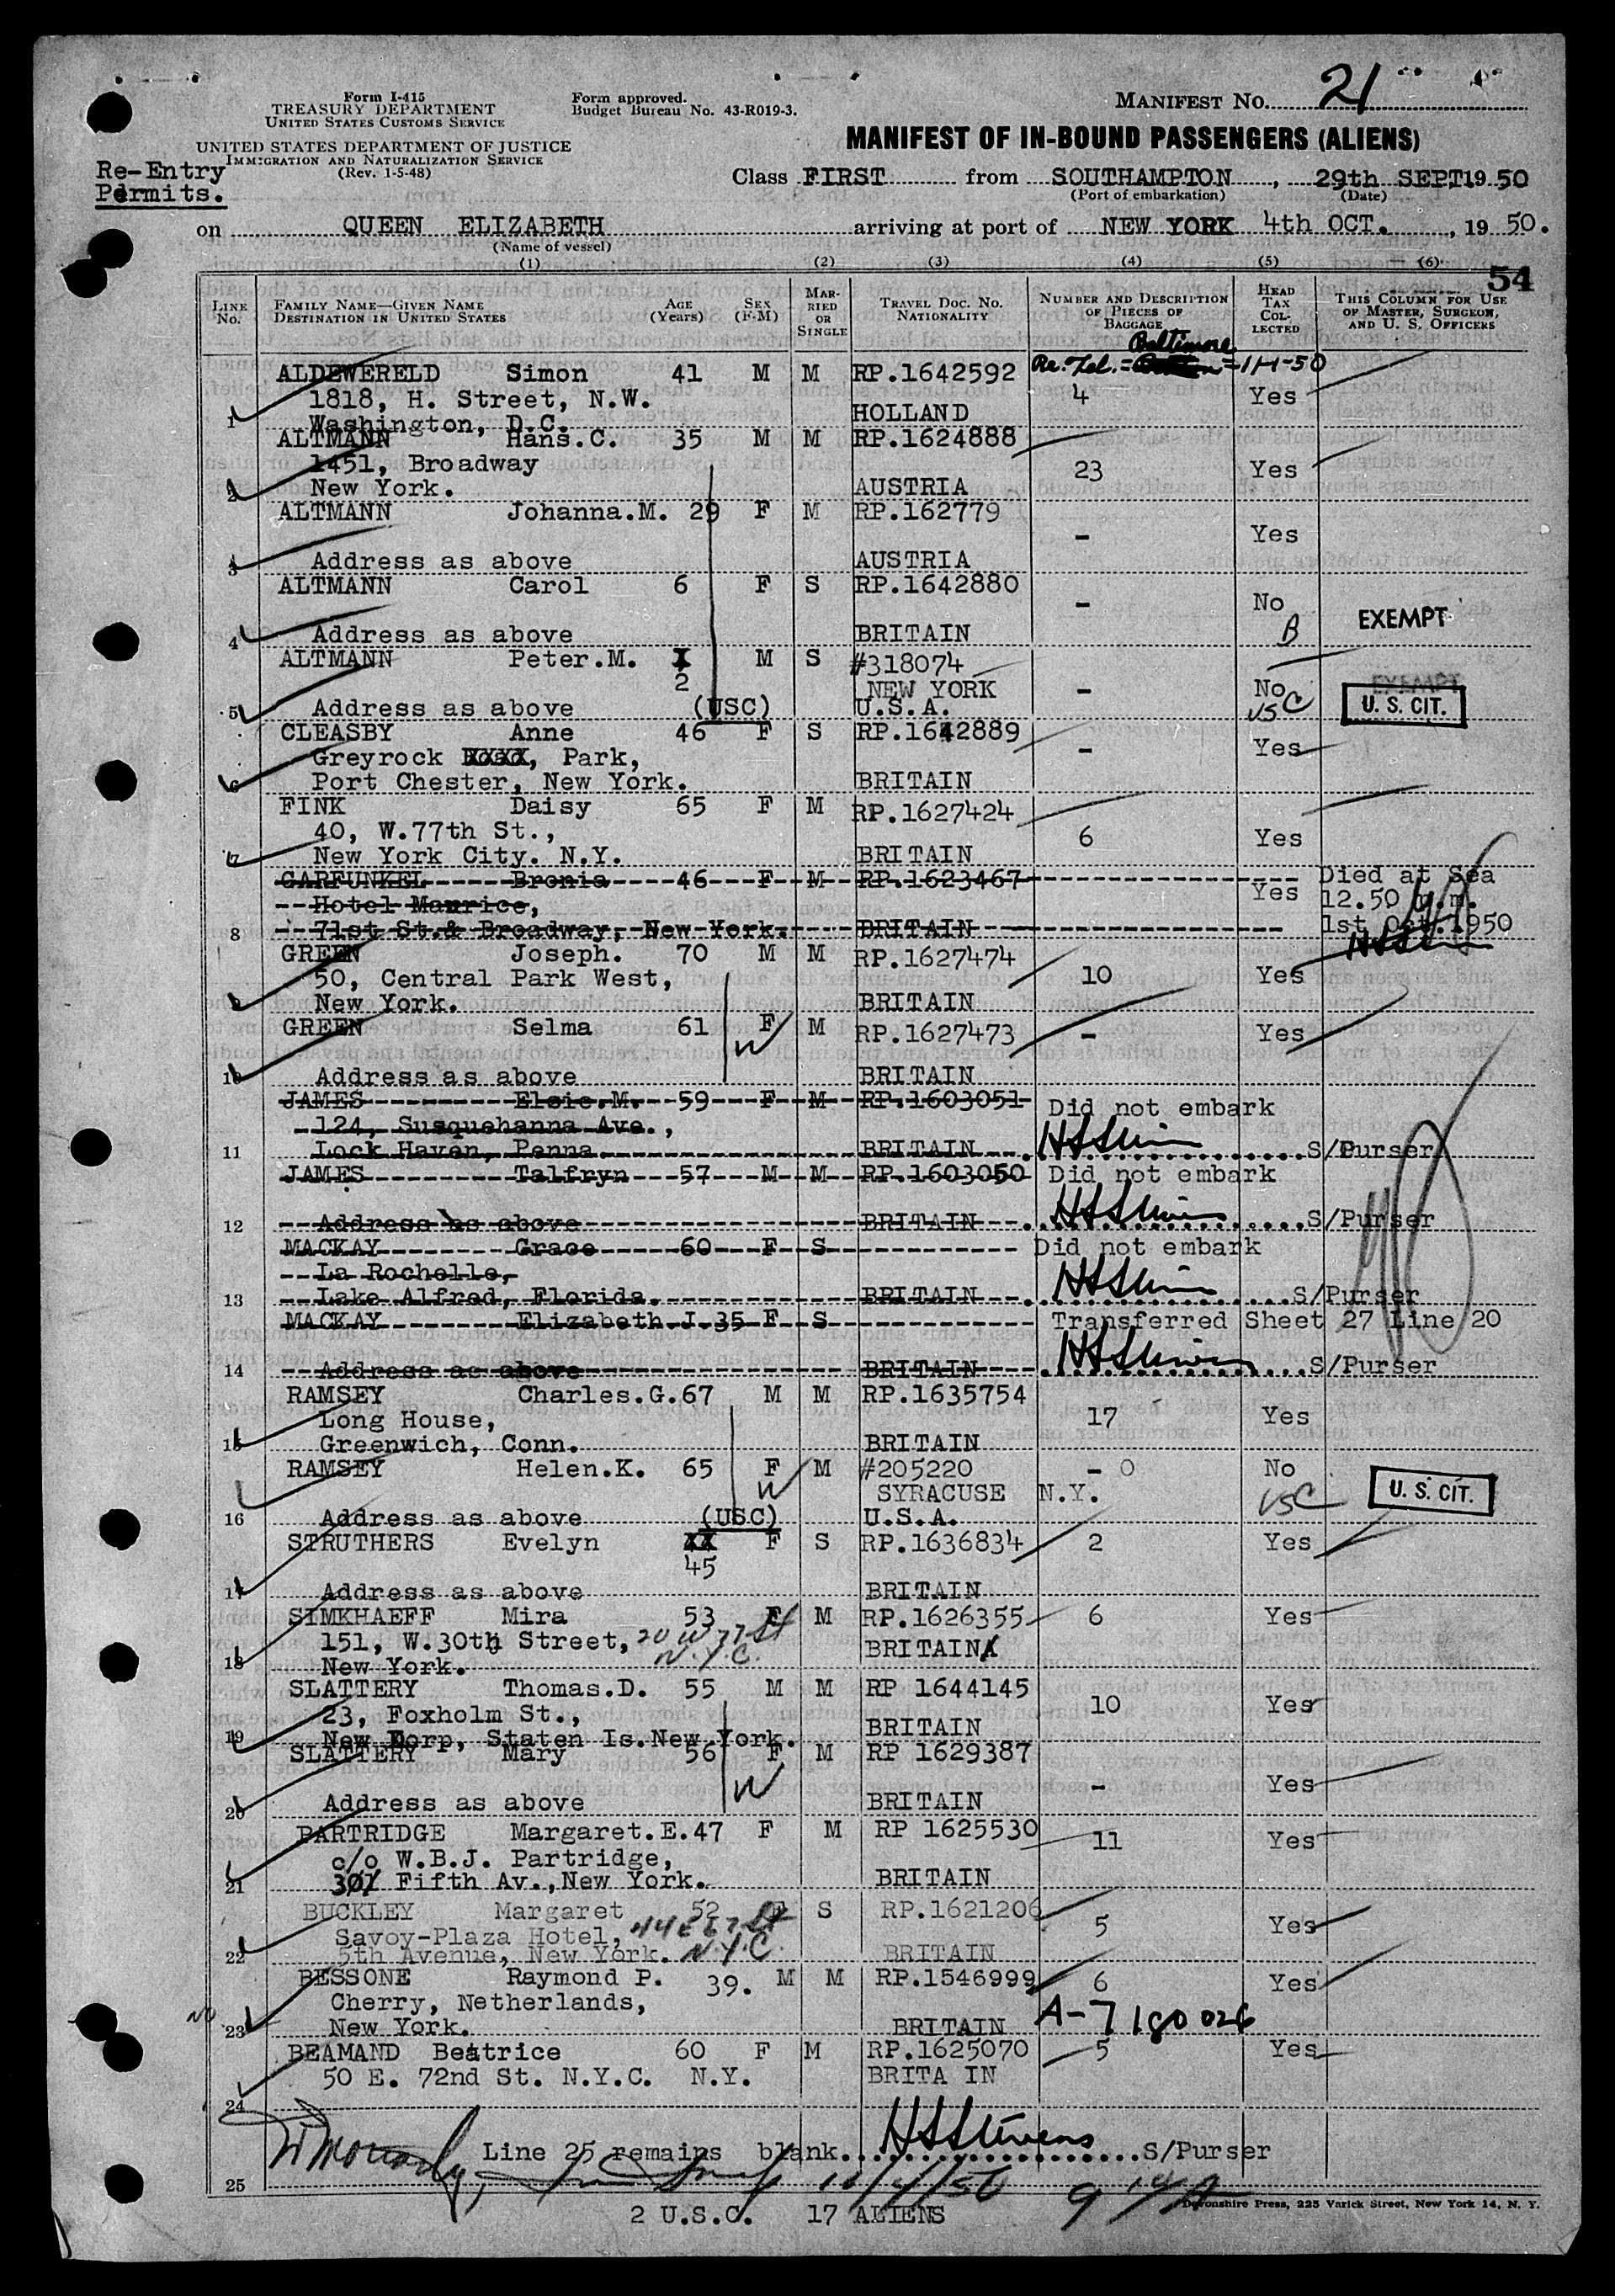 Form I-415
TREASURY DEPARTMENT
UNITED STATES CUSTOMS SERVICE
Form approved.
Budget Bureau No. 43-R019-3.
MANIFEST No. 21
UNITED STATES DEPARTMENT OF JUSTICE
IMMIGRATION AND NATURALIZATION SERVICE
(Rev. 1-5-48)
MANIFEST OF IN-BOUND PASSENGERS (ALIENS)
Re-Entry
Permits.
Class FIRST from SOUTHAMPTON, 29th SEPT 19 50
(Port of embarkation) (Date)
on QUEEN ELIZABETH arriving at port of NEW YORK 4th OCT., 19 50.
(Name of vessel)
(1) (2) (3) (4) (5) (6)
54
LINE No. FAMILY NAME—GIVEN NAME DESTINATION IN UNITED STATES AGE (Years) SEX (F-M) MARRIED OR SINGLE TRAVEL DOC. No. NATIONALITY NUMBER AND DESCRIPTION OF PIECES OF BAGGAGE HEAD TAX COLLECTED THIS COLUMN FOR USE OF MASTER, SURGEON, AND U. S. OFFICERS
Baltimore
ALDEWERELD Simon 41 M M RP.1642592 Re. Tel. = = 11-1-50
1818, H. Street, N.W. 4 Yes
1 Washington, D.C. HOLLAND
ALTMANN Hans.C. 35 M M RP.1624888
1451, Broadway 23 Yes
2 New York. AUSTRIA
ALTMANN Johanna.M. 29 F M RP.162779
- Yes
3 Address as above AUSTRIA
ALTMANN Carol 6 F S RP.1642880
- No EXEMPT
4 Address as above BRITAIN B
ALTMANN Peter.M. M S #318074
2 NEW YORK - No EXEMPT
5 Address as above (USC) U.S.A. USC U. S. CIT.
CLEASBY Anne 46 F S RP.1642889
Greyrock Road, Park, - Yes
6 Port Chester, New York. BRITAIN
FINK Daisy 65 F M RP.1627424
40, W.77th St., 6 Yes
7 New York City. N.Y. BRITAIN
GARFUNKEL Bronia 46 F M RP.1623467 Died at Sea
Hotel Maurice, Yes 12.50 .m.
8 71st St.& Broadway, New York. BRITAIN 1st Oct.1950
GREEN Joseph. 70 M M RP.1627474
50, Central Park West, 10 Yes
9 New York. BRITAIN
GREEN Selma 61 F M RP.1627473 - Yes
W
10 Address as above BRITAIN
JAMES Elsie.M. 59 F M RP.1603051 Did not embark
124, Susquehanna Ave.,
11 Lock Haven, Penna. BRITAIN S/Purser
JAMES Talfryn 57 M M RP.1603050 Did not embark
12 Address as above BRITAIN S/Purser
MACKAY Grace 60 F S Did not embark
La Rochelle,
13 Lake Alfred, Florida. BRITAIN S/Purser
MACKAY Elizabeth.J.35 F S Transferred Sheet 27 Line 20
14 Address as above BRITAIN S/Purser
RAMSEY Charles.G.67 M M RP.1635754
Long House, 17 Yes
15 Greenwich, Conn. BRITAIN
RAMSEY Helen.K. 65 F M #205220 - 0 No
W SYRACUSE N.Y. USC U. S. CIT.
16 Address as above (USC) U.S.A.
STRUTHERS Evelyn F S RP.1636834 2 Yes
45
17 Address as above BRITAIN
SIMKHAEFF Mira 53 F M RP.1626355 6 Yes
151, W.30th Street, 20 W 77 St BRITAIN
18 New York. N.Y.C.
SLATTERY Thomas.D. 55 M M RP 1644145
23, Foxholm St., 10 Yes
19 New Dorp, Staten Is.New York. BRITAIN
SLATTERY Mary 56 F M RP 1629387
W - Yes
20 Address as above BRITAIN
PARTRIDGE Margaret.E.47 F M RP 1625530
c/o W.B.J. Partridge, 11 Yes
21 Fifth Av.,New York. BRITAIN
BUCKLEY Margaret 52 F S RP.1621206
Savoy-Plaza Hotel, 44 E 67 St 5 Yes
22 5th Avenue, New York. N.Y.C. BRITAIN
BESSONE Raymond P. 39. M M RP.1546999 6 Yes
Cherry, Netherlands,
No 23 New York. BRITAIN A-7180026
BEAMAND Beatrice 60 F M RP.1625070 5 Yes
50 E. 72nd St. N.Y.C. N.Y. BRITA IN
24
Line 25 remains blank. HS Stevens S/Purser
25 10/4/50
Devonshire Press, 225 Varick Street, New York 14, N. Y.
2 U.S.C. 17 ALIENS